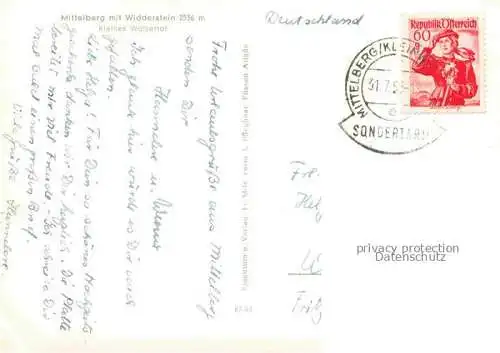 Mittelberg mit Widderstein 2536 m
Kleines Walsertal
Deutschland
Republik Österreich
60
MITTELBERG/KLEIN
31.7.5
e
SONDERTARIF
Frohe Urlaubsgrüße aus Mittelberg
senden Dir
Hannelore u. Werner
Ich glaube hier würde es Dir auch
gefallen.
Liebe Helga! Für Dein so schönes Hochzeits-
geschenk danken wir Dir herzlich. Die Platte
bereitet mir viel Freude. Ich schreibe Dir
mal bald einen großen Brief.
Liebe Grüße Hannelore
Füssen Allgäu
Frl.
Fritz
privacy protection
Datenschutz